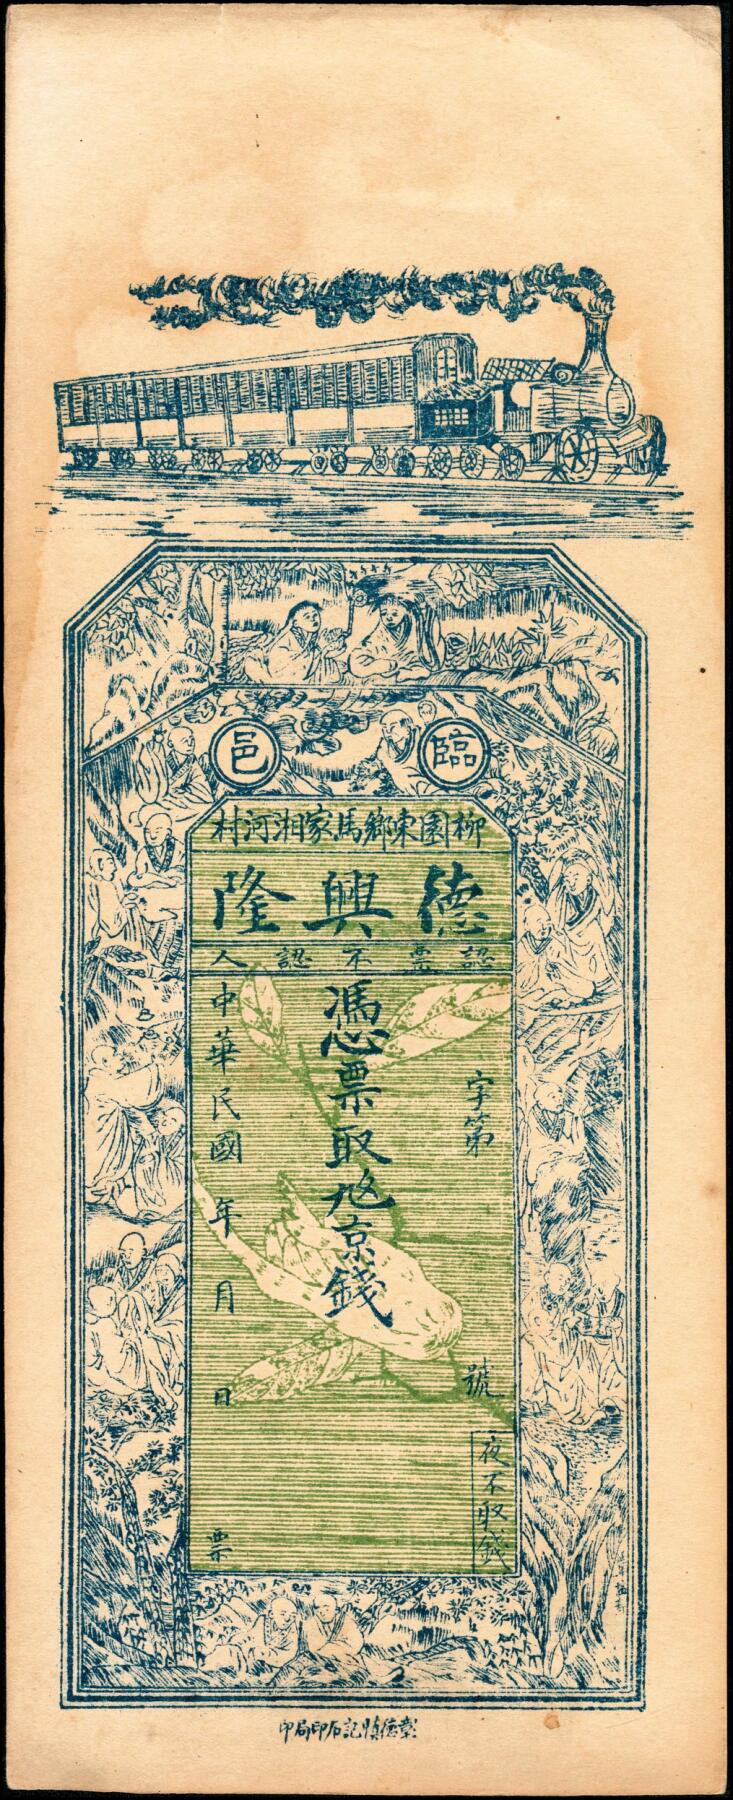 臨邑
柳園東鄉馬家湘河村
德興隆
認票不認人
字第
號
夜不収錢
馮心票取兑京錢
中華民國 年 月 日 票
彰德慎記石印局印